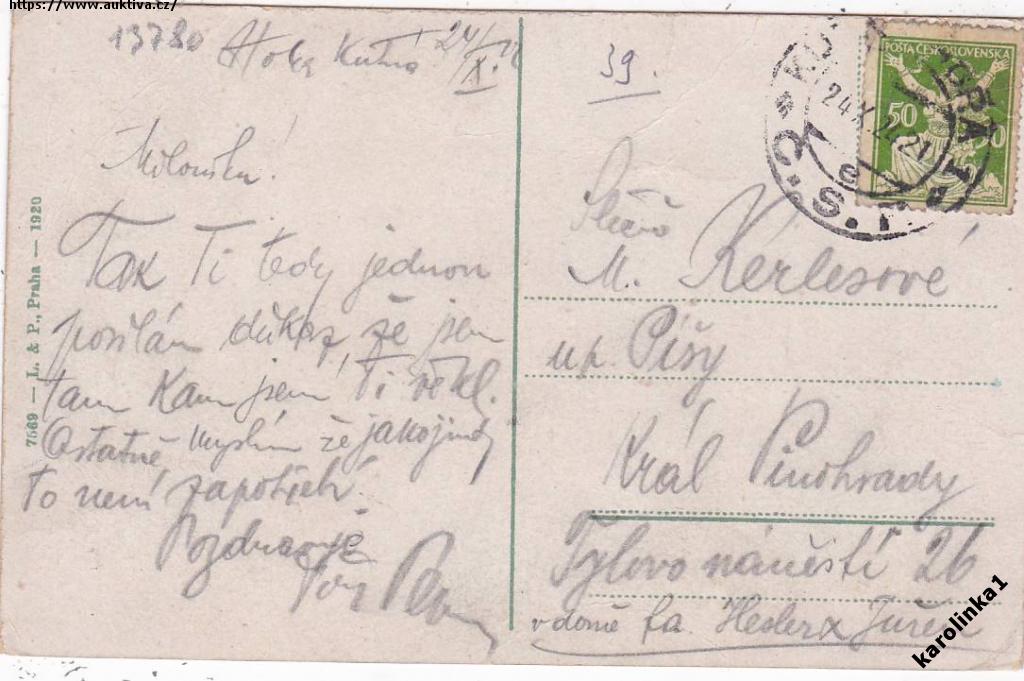 https://www.auktiva.cz/
13780
Hora Kutná 24/X.
39.
POSTA ČESKOSLOVENSKA
50 50
24 X 22 -21
Č.S.
Miloušku!
Tak Ti tedy jednou
posílám důkaz, že jsem
tam kam jsem Ti řekl.
Ostatně myslím že jakojindy
to není zapotřebí.
Pozdravuje
7569 — L. & P., Praha — 1920
Slečo
M. Kerlesové
up. Píšy
Král Vinohrady
Tylovo náměstí 26
v domě fa.
karolinka1